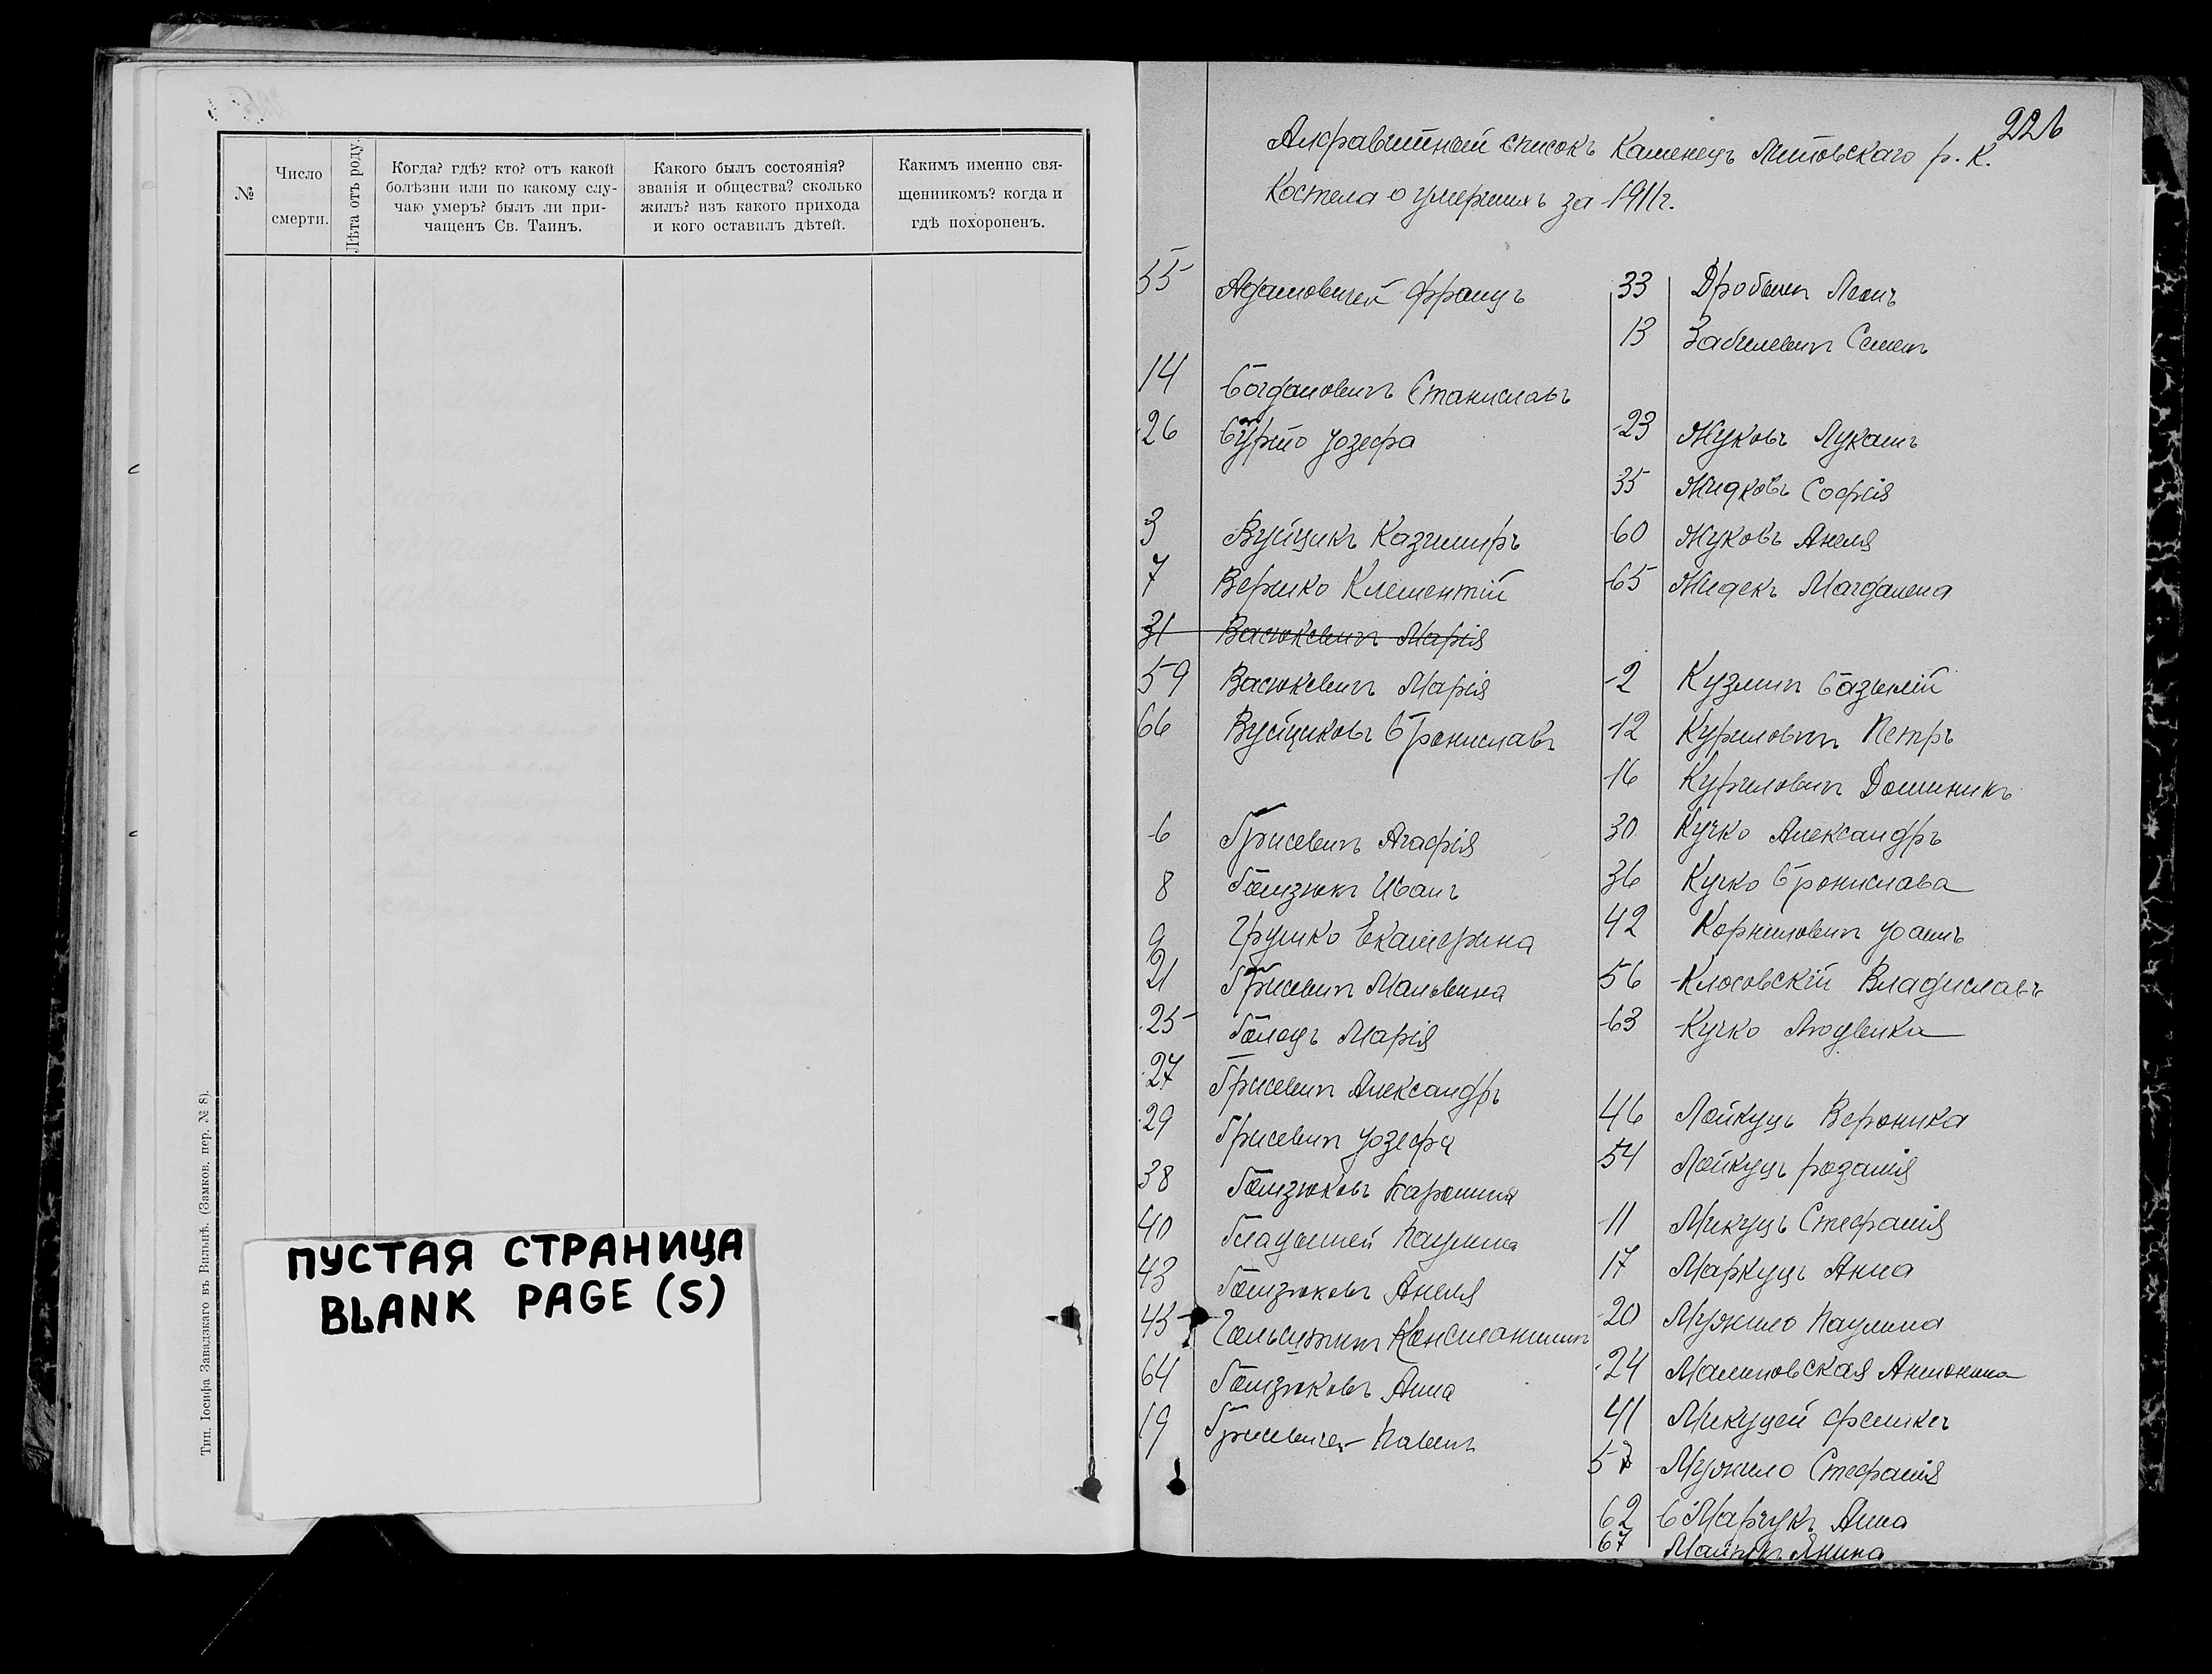 №
Число
смерти.
Лѣта отъ роду.
Когда? гдѣ? кто? отъ какой
болѣзни или по какому слу-
чаю умеръ? былъ ли при-
чащенъ Св. Таинъ.
Какого былъ состоянія?
званія и общества? сколько
жилъ? изъ какого прихода
и кого оставилъ дѣтей.
Какимъ именно свя-
щенникомъ? когда и
гдѣ похороненъ.
Тип. Іосифа Завадзкаго въ Вильнѣ. (Замков. пер. № 8).
ПУСТАЯ СТРАНИЦА
BLANK PAGE (S)
226
Алфавитный списокъ Каменецъ Литовскаго р. К.
Костела о умершихъ за 1911г.
55 Адамовичей Францъ
14 Богдановичъ Станиславъ
26 Юзефа
3 Вуйцикъ Казимиръ
7 Верико Клементій
31 Васюкевичъ Марія
59 Васюкевичъ Марія
66 Вуйциковъ Брониславъ
6 Грисевичъ Агафія
8 Гомзюкъ Иванъ
9 Грушко Екатерина
21 Грисевичъ Мальвина
25 Голодъ Марія
27 Грисевичъ Александръ
29 Грисевичъ Юзефа
38 Гомзюковъ Каролина
40 Гладышей Паулина
43 Гомзюковъ Анеля
45 Константинъ
64 Гомзюковъ Анна
19 Грисевичей Павелъ
33 Леонъ
13 Семенъ
23 Жуковъ Лукашъ
35 Жидковъ Софія
60 Жуковъ Анеля
65 Жидекъ Магдалена
2 Кузмич Базылій
12 Куриловичъ Петръ
16 Куриловичъ Доминикъ
30 Кучко Александръ
36 Кучко Бронислава
42 Корниловичъ Іоаннъ
56 Клосовскій Владиславъ
63 Кучко Людвика
46 Лойкуцъ Вероника
54 Лойкуцъ Розалія
11 Микуцъ Стефанія
17 Маркуцъ Анна
20 Мужило Паулина
24 Малиновская Антонина
41 Микуцей Феликсъ
57 Мужило Стефанія
62 Марчукъ Анна
67 Янина